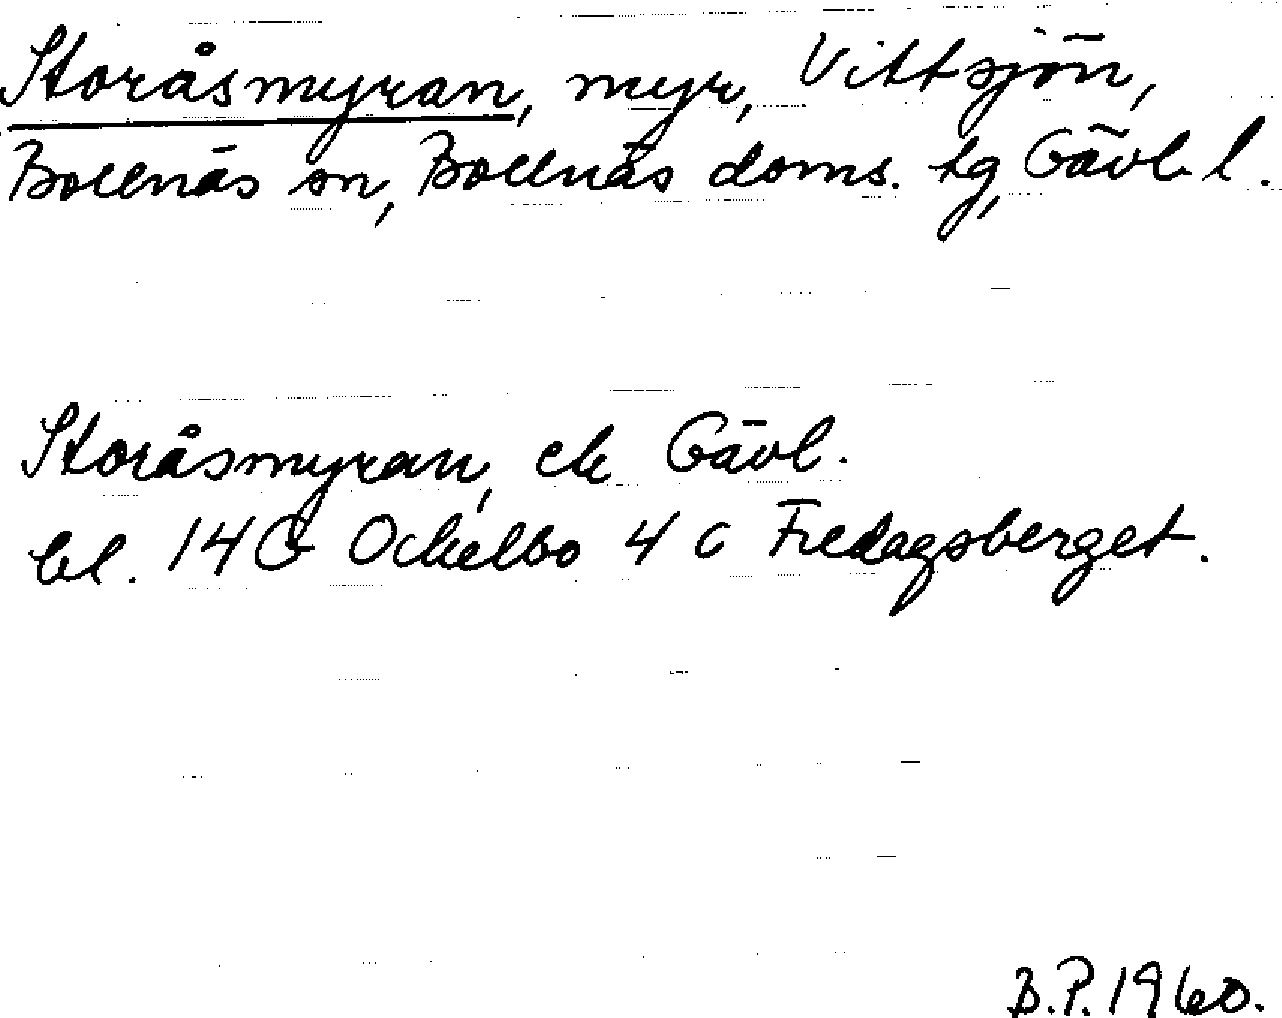 Storåsmyran, myr, Vittsjön,
Bollnäs sn, Bollnäs doms. tg, Gävl. l.
Storåsmyran, ek Gävl.
bl. 14G Ockelbo 4 c Fredagsberget.
B.P. 1960.